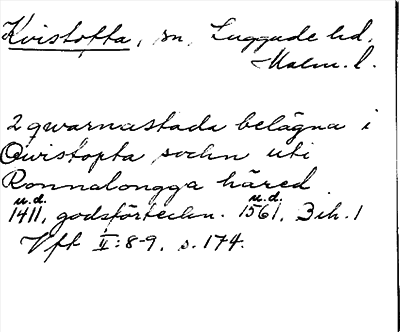 Kvistofta, sn, Luggude hd.
Malm. l.
2 qwarnastada belägna i
Qwistopta sochn uti
Ronnalongga häred
u.d. u.d.
1411, godsförteckn. 1561. 3 eh. 1
Vft II:8-9, s. 174.